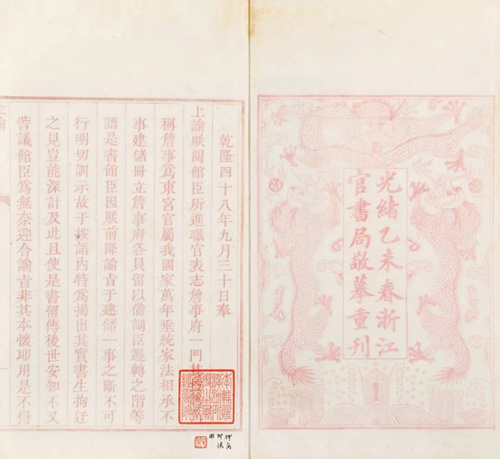 光緒乙未春浙江
官書局敬摹重刊
乾隆四十八年九月三十日奉
上諭朕閱館臣所進職官表志詹事府一門
稱詹事爲東宮官屬我國家萬年垂統家法相承不
事建儲冊立詹事府各員留以備詞臣遷轉之階等
語是書館臣因朕前降諭旨于建儲一事之斷不可
行明切訓示故于該語內特爲揭出其實書生拘迂
之見豈能深計及此且使是書留傳後世安知不又
訾議館臣爲無奈迎合諭旨非其本懷即用是不得